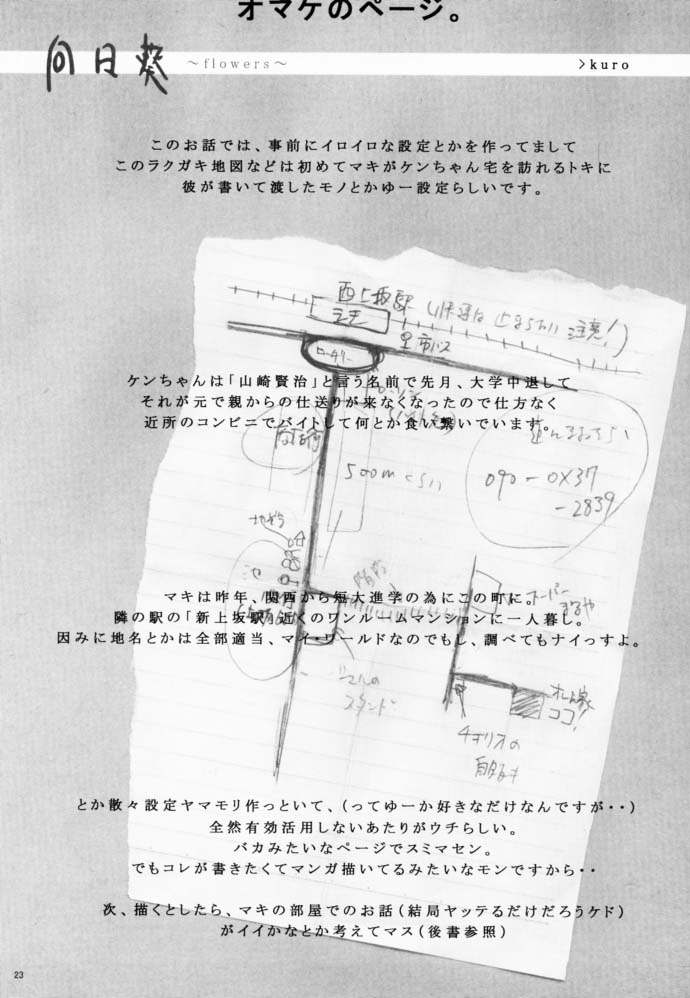 オマケのページ。
向日葵
～flowers～
>kuro
このお話では、事前にイロイロな設定とかを作ってまして
このラクガキ地図などは初めてマキがケンちゃん宅を訪れるトキに
彼が書いて渡したモノとかゆー設定らしいです。
西上坂駅
注意!
市バス
ケンちゃんは「山崎賢治」と言う名前で先月、大学中退して
それが元で親からの仕送りが来なくなったので仕方なく
近所のコンビニでバイトして何とか食い繋いでいます。
500mくらい
090-0X37
-2839
池
階段
マキは昨年、関西から短大進学の為にこの町に。
隣の駅の「新上坂駅」近くのワンルームマンションに一人暮し。
因みに地名とかは全部適当、マイ・ワールドなのでもし、調べてもナイっすよ。
スーパー
まるや
スタンド
オレん家
ココ!
チェリオの
自販キ
とか散々設定ヤマモリ作っといて、(ってゆーか好きなだけなんですが・・)
全然有効活用しないあたりがウチらしい。
バカみたいなページでスミマセン。
でもコレが書きたくてマンガ描いてるみたいなモンですから・・
次、描くとしたら、マキの部屋でのお話(結局ヤッテるだけだろうケド)
がイイかなとか考えてマス(後書参照)
23